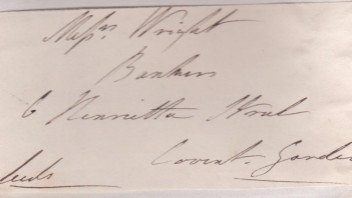 Messrs Wright
Bankers
6 Henrietta Street
Covent Garden
Leeds